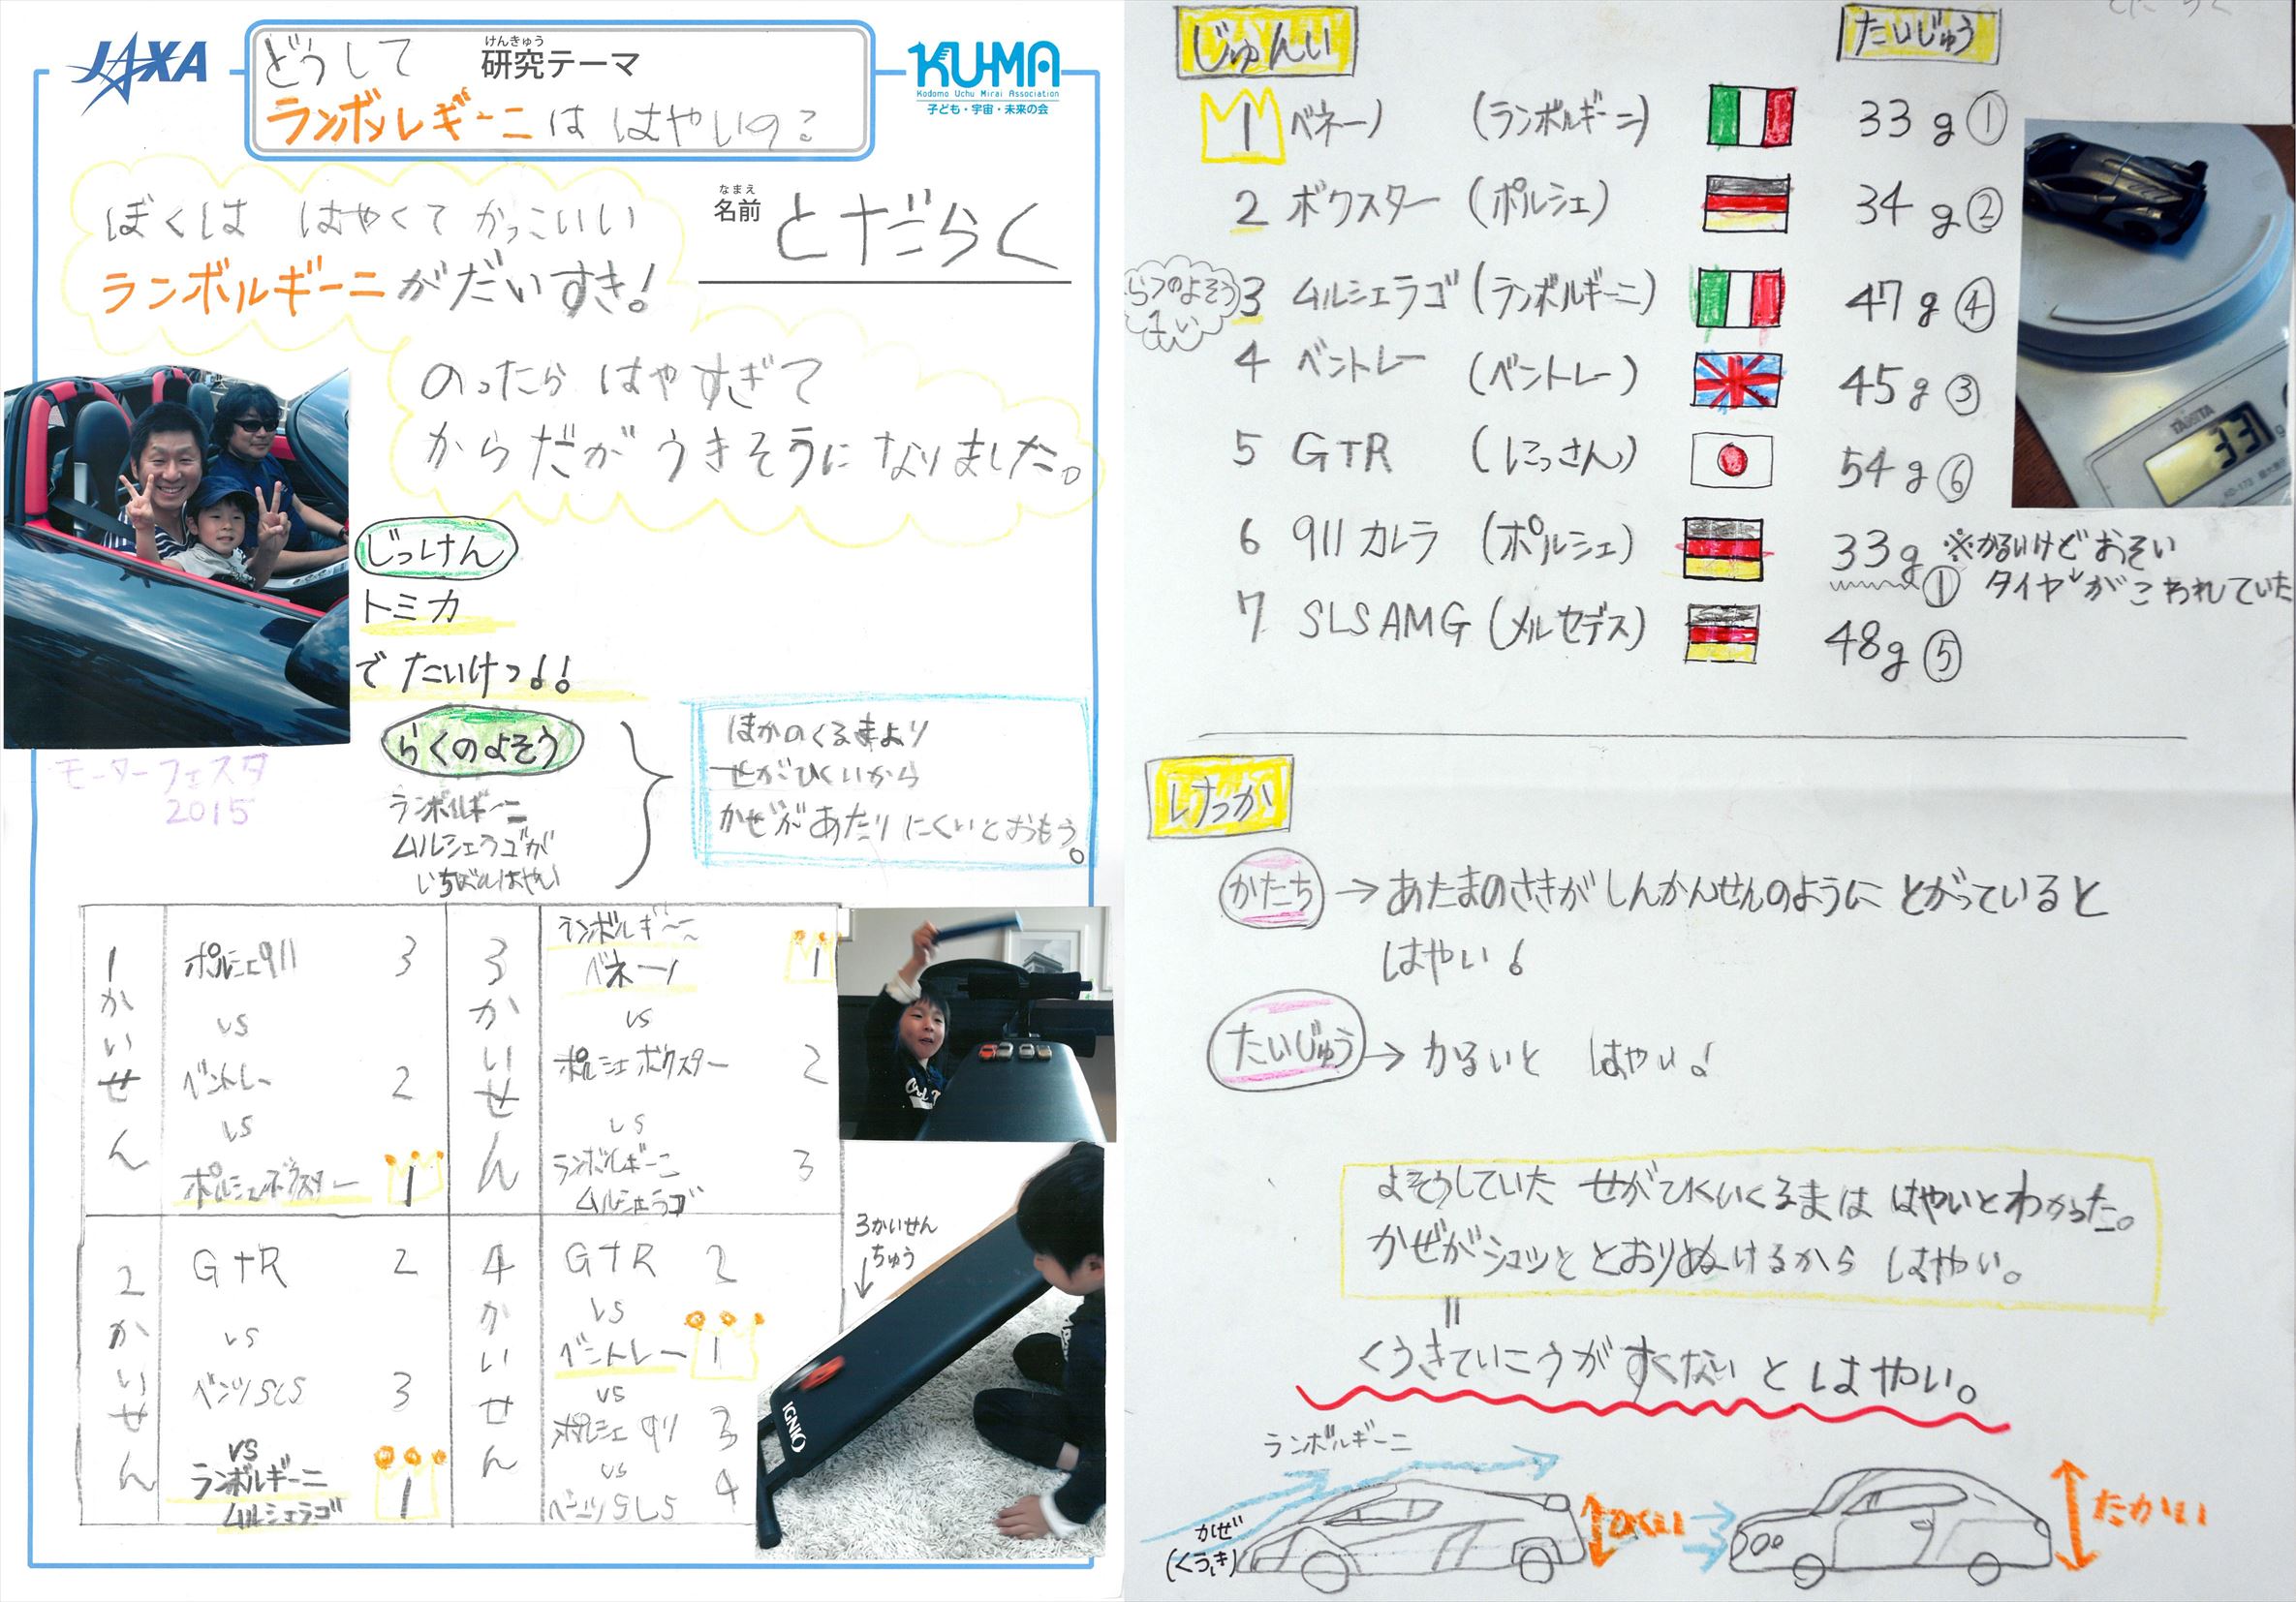 JAXA
どうして
けんきゅう
研究テーマ
ランボルギーニは はやいの?
KU-MA
Kodomo Uchu Mirai Association
子ども・宇宙・未来の会
ぼくは はやくて かっこいい
ランボルギーニがだいすき!
なまえ
名前
とだらく
のったら はやすぎて
からだがうきそうになりました。
じっけん
トミカ
でたいけつ!!
モーターフェスタ
2015
らくのよそう
ランボルギーニ
ムルシェラゴが
いちばんはやい
ほかのくるまより
せがひくいから
かぜがあたりにくいとおもう。
1かいせん
ポルシェ911 3
vs
ベントレー 2
vs
ポルシェボクスター 1
2かいせん
GTR 2
vs
ベンツSLS 3
vs
ランボルギーニ
ムルシェラゴ 1
3かいせん
ランボルギーニ
ベネーノ 1
vs
ポルシェボクスター 2
vs
ランボルギーニ
ムルシェラゴ 3
4かいせん
GTR 2
vs
ベントレー 1
vs
ポルシェ911 3
vs
ベンツSLS 4
3かいせん
ちゅう
IGNIO
じゅんい
たいじゅう
1 ベネーノ (ランボルギーニ) 33g ①
2 ボクスター (ポルシェ) 34g ②
らくのよそう
3 ムルシェラゴ (ランボルギーニ) 47g ④
4 ベントレー (ベントレー) 45g ③
5 GTR (にっさん) 54g ⑥
6 911カレラ (ポルシェ) 33g ①
※かるいけどおそい
タイヤがこわれていた
7 SLSAMG (メルセデス) 48g ⑤
TANITA
33
けっか
かたち → あたまのさきがしんかんせんのようにとがっていると
はやい!
たいじゅう → かるいと はやい!
よそうしていた せがひくいくるまは はやいとわかった。
かぜがシュッととおりぬけるから はやい。
くうきていこうがすくないとはやい。
ランボルギーニ
かぜ
(くうき)
ひくい
たかい